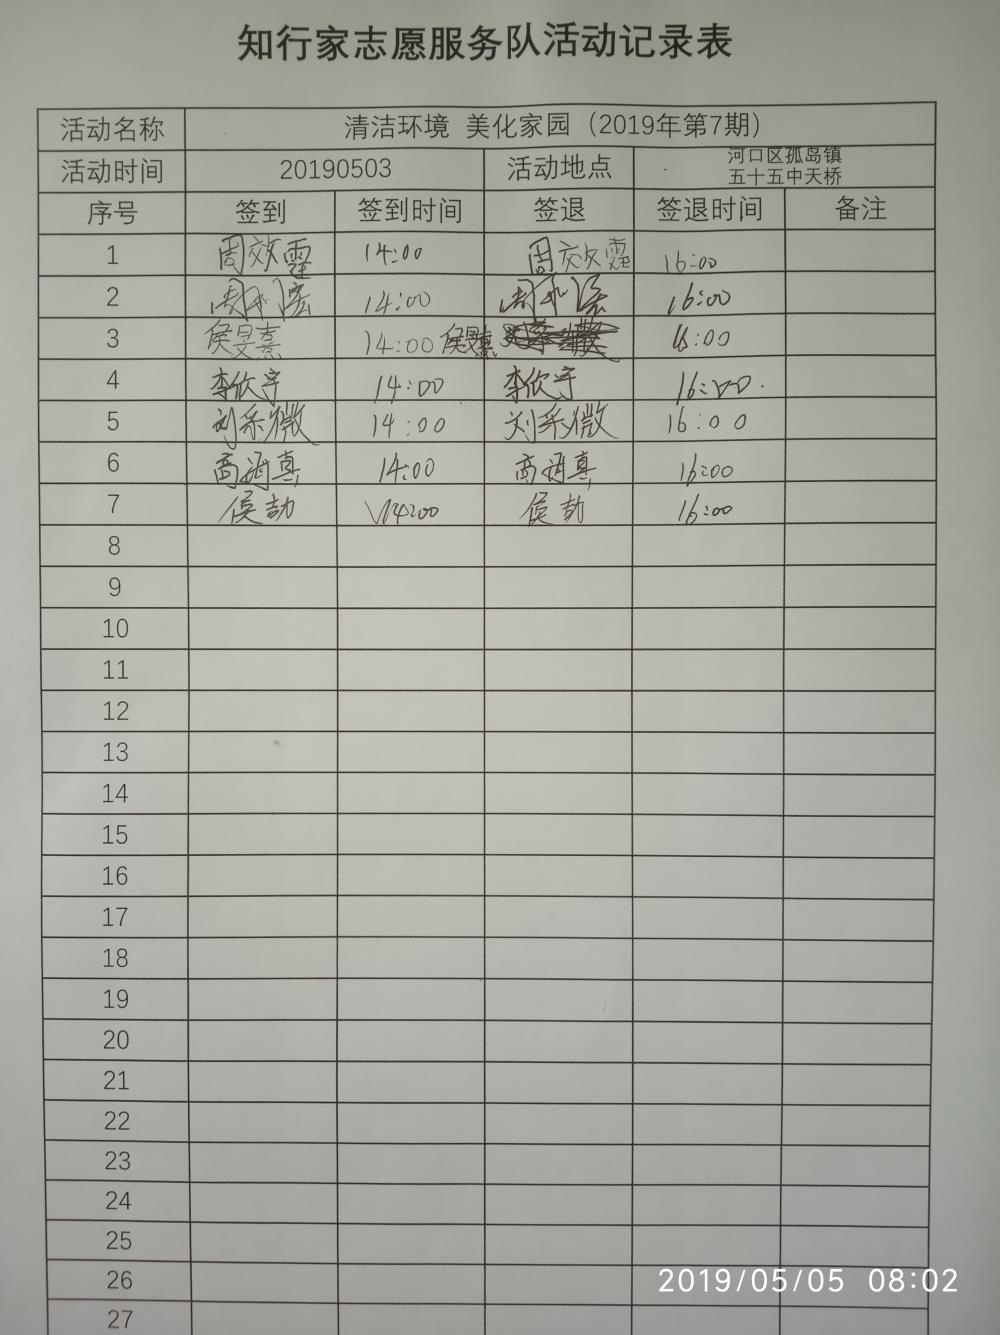 知行家志愿服务队活动记录表
活动名称 清洁环境 美化家园（2019年第7期）
活动时间 20190503 活动地点 河口区孤岛镇
五十五中天桥
序号 签到 签到时间 签退 签退时间 备注
1 周效霆 14:00 周效霆 16:00
2 14:00 16:00
3 侯旻熹 14:00 侯旻熹 16:00
4 李欣宇 14:00 李欣宇 16:00.
5 刘采微 14:00 刘采微 16:00
6 14:00 16:00
7 侯劼 14:00 侯劼 16:00
8
9
10
11
12
13
14
15
16
17
18
19
20
21
22
23
24
25
26
27
2019/05/05 08:02